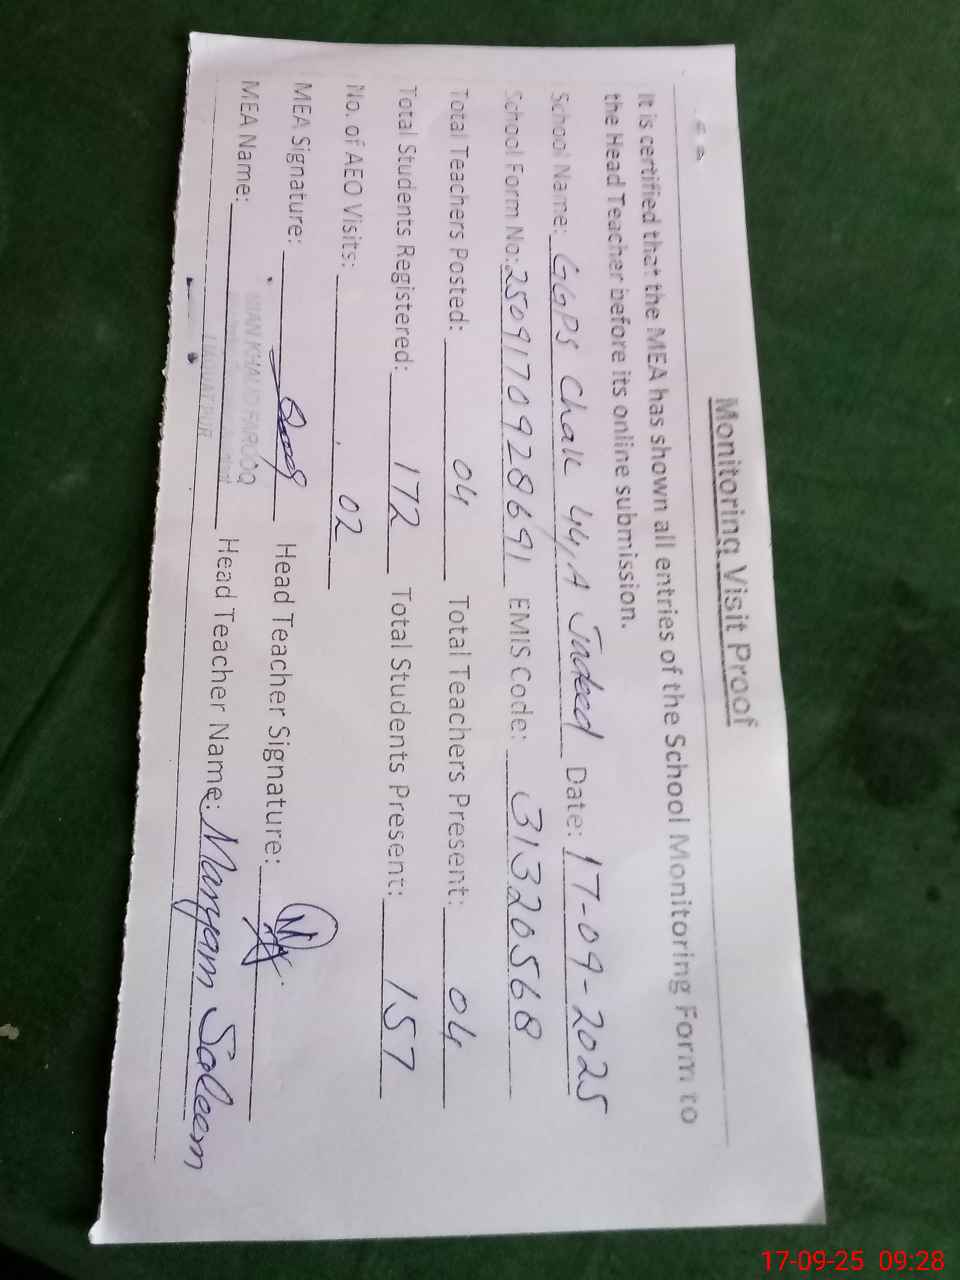 Monitoring Visit Proof
It is certified that the MEA has shown all entries of the School Monitoring Form to
the Head Teacher before its online submission.
School Name: GGPS Chak 44, A Jadeed Date: 17-09-2025
School Form No: 2509170928691 EMIS Code: 31320568
Total Teachers Posted: 04 Total Teachers Present: 04
Total Students Registered: 172 Total Students Present: 157
No. of AEO Visits: 02
MEA Signature: Head Teacher Signature:
MIAN KHALID FAROOQ
MEA Name: Head Teacher Name: Maryam Saleem
LIAQUATPUR
17-09-25 09:28